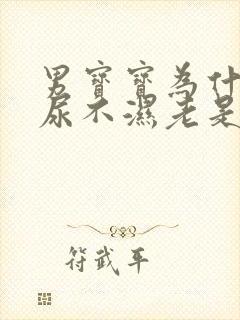 男寶寶為什
尿不濕老是
符武平